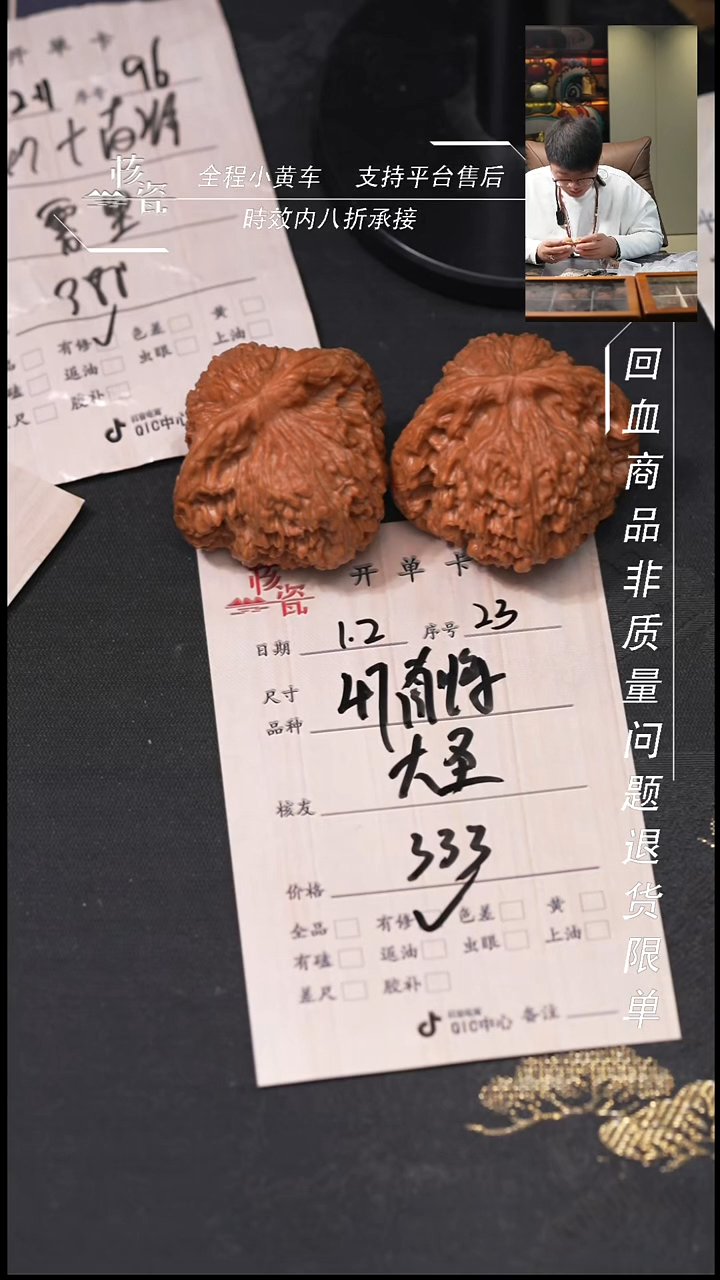 开单卡
序号 96
399
有修 色差 黄
返油 虫眼 上油
胶补
QIC中心
核瓷
全程小黄车 支持平台售后
時效内八折承接
回血商品非质量问题退货限单
核瓷
开单卡
日期 1.2 序号 23
尺寸
品种 47南将
大圣
核友
333
价格
全品 有修 色差 黄
有磕 返油 虫眼 上油
差尺 胶补
抖音电商
QIC中心 备注